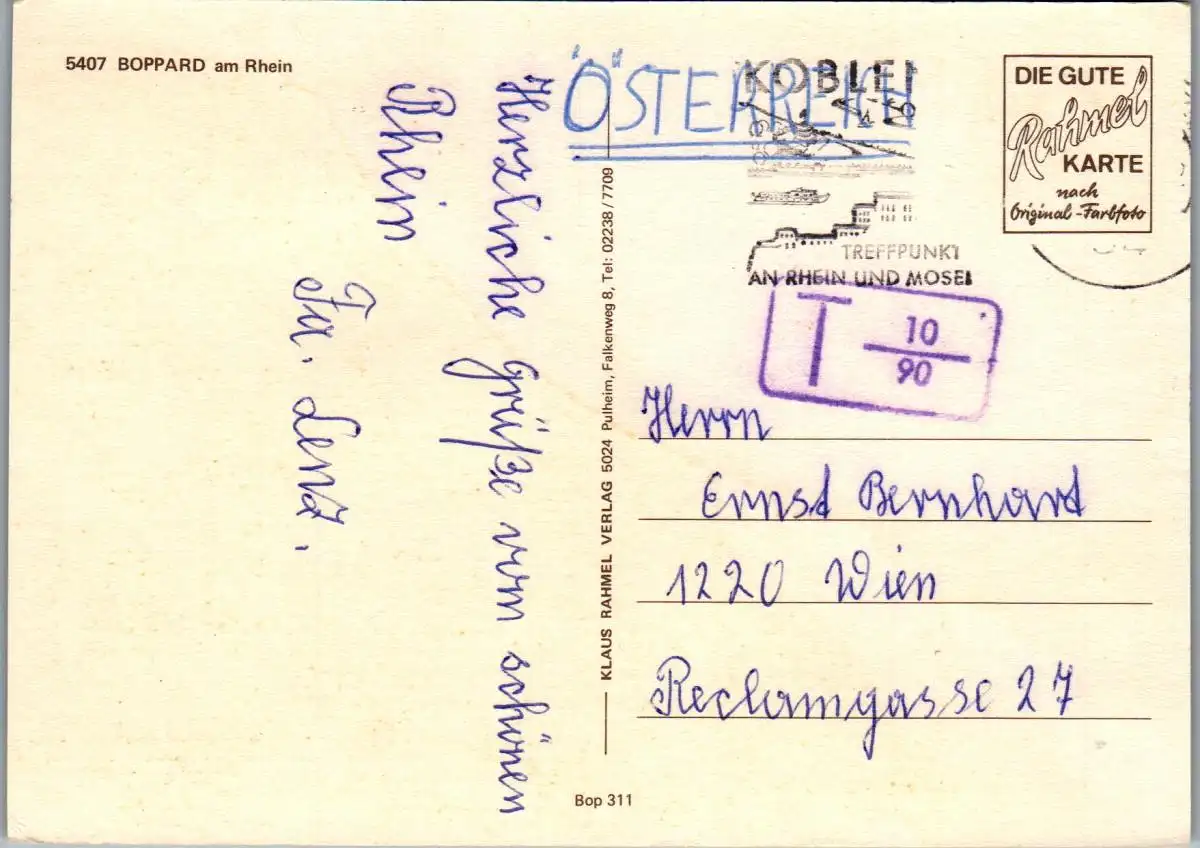 5407 BOPPARD am Rhein
Herzliche Grüße vom schönen
Rhein
Fa. Lenz.
ÖSTERREICH
KOBLE
TREFFPUNKT
AN RHEIN UND MOSEL
DIE GUTE
Rahmel
KARTE
nach
Original-Farbfoto
T 10/90
Herrn
Ernst Bernhart
1220 Wien
Reclamgasse 27
KLAUS RAHMEL VERLAG 5024 Pulheim, Falkenweg 8, Tel: 02238/7709
Bop 311